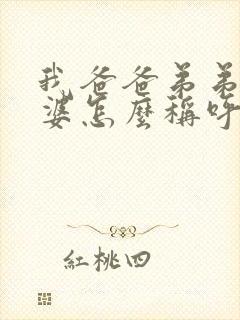 我爸爸弟弟
婆怎麼稱呼
紅桃四